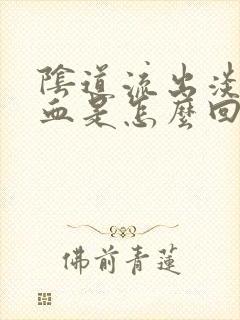 陰道流出淡
血是怎麼回
佛前青蓮